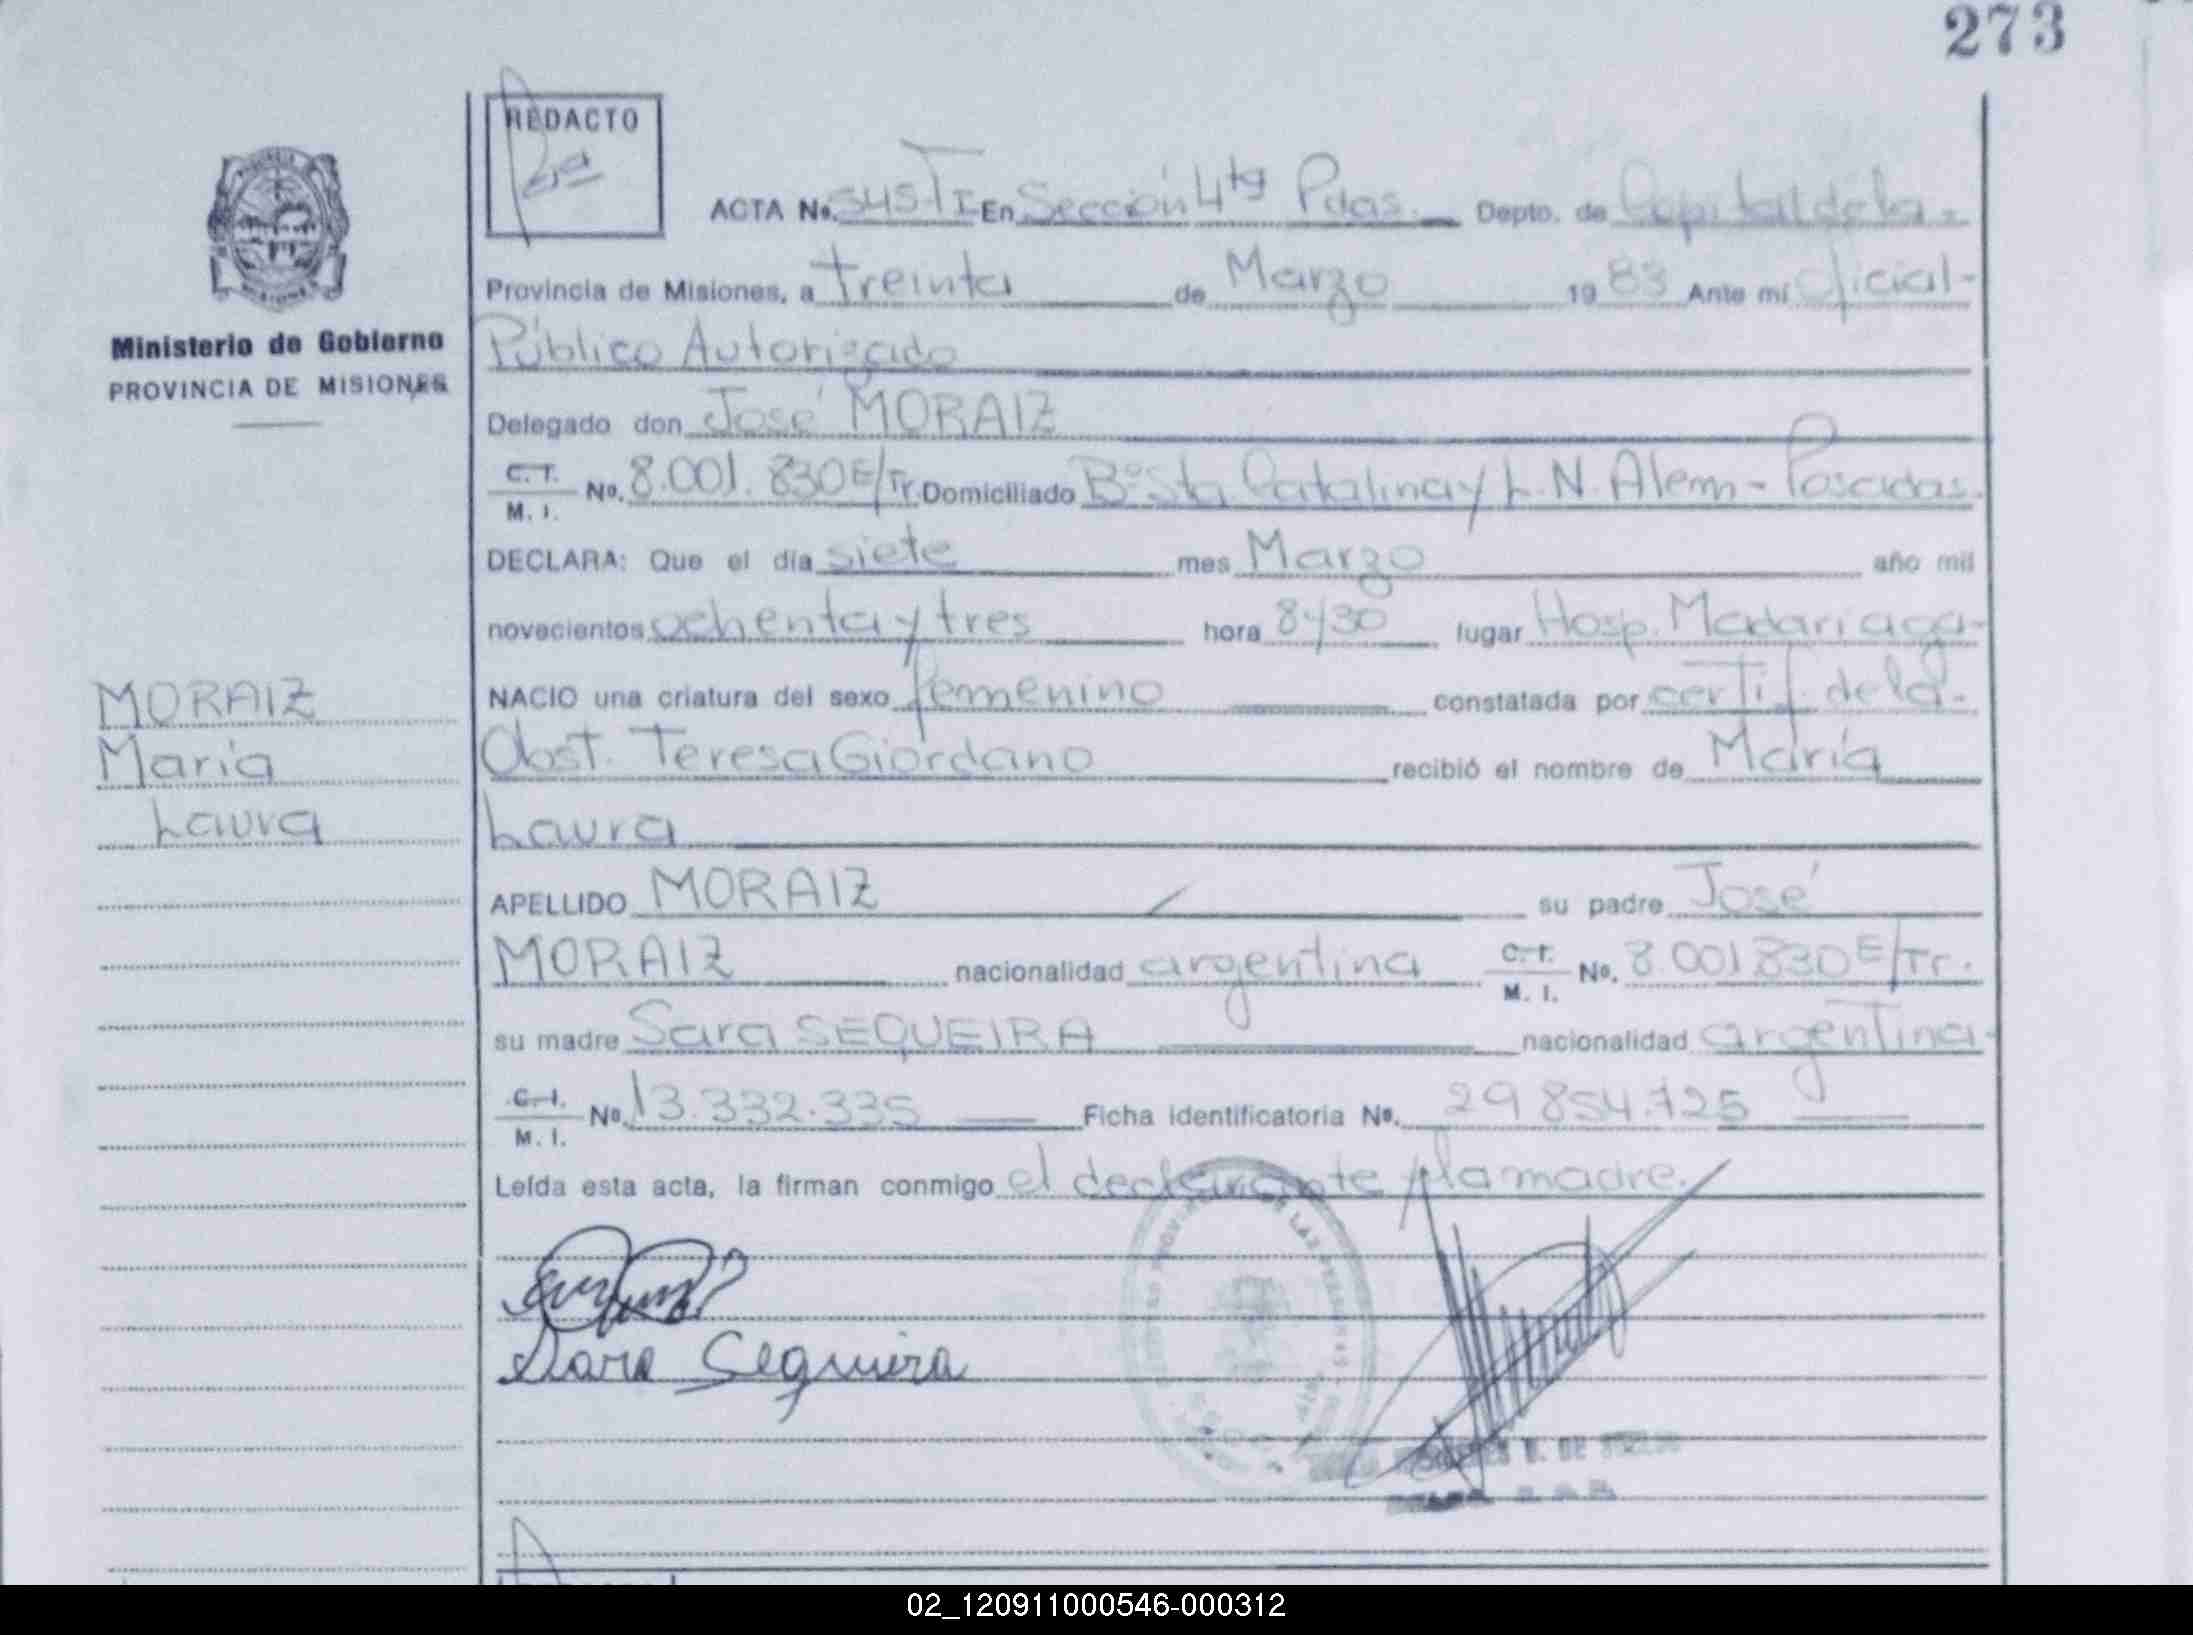 273
REDACTO
ACTA No. 545 TI En Sección 4ta Pdas. Depto. de Capital de la-
Provincia de Misiones, a treinta de Marzo 1983 Ante mí oficial-
Ministerio de Gobierno
PROVINCIA DE MISIONES
Público Autorizado
Delegado don José MORAIZ
C.I. M.I. No. 8.001.830 E/Tr. Domiciliado Bº Sta. Catalina y L.N. Alem - Posadas.
DECLARA: Que el día siete mes Marzo año mil
novecientos ochenta y tres hora 8y30 lugar Hosp. Madariaga-
NACIO una criatura del sexo femenino constatada por certif. de la-
Obst. Teresa Giordano recibió el nombre de María
Laura
MORAIZ
María
Laura
APELLIDO MORAIZ su padre José
MORAIZ nacionalidad argentina C.I. M.I. No. 8.001830 E/Tr.
su madre Sara SEQUEIRA nacionalidad argentina-
C.I. M.I. No. 13.332.335 Ficha identificatoria No. 29854.725
Leída esta acta, la firman conmigo el declarante y la madre.
Sara Sequiera
02_120911000546-000312